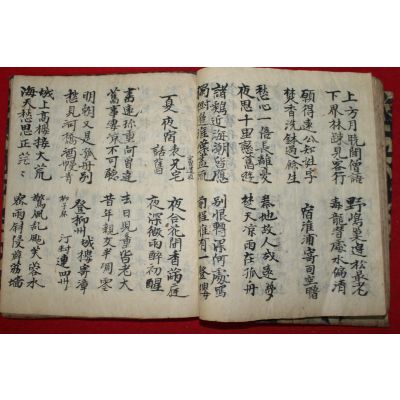 上方月曉聞僧語
下界林疎見客行
野鶴巢邊松最老
毒龍潛處水偏清
願得遠公知姓字
焚香洗鉢過餘生
宿淮浦寄司空曙
愁心一倍長離憂
夜思千里戀舊遊
秦地故人成遠夢
楚天凉雨在孤舟
諸鷄近海潮皆應
獨樹邊淮葉盡流
別恨轉深何處寫
前程唯有一登樓
夏夜宿表兄宅話舊
夜合花開香滿庭
夜深微雨醉初醒
書遠珍重何曾達
舊事凄凉不可聽
去日兒童皆老大
昔年親友半凋零
明朝又是孤舟別
愁見河橋酒幔青
登柳州城樓寄漳汀封連四州
柳宗元
城上高樓接大荒
海天愁思正茫〻
驚風亂颭芙蓉水
密雨斜侵薜荔墻